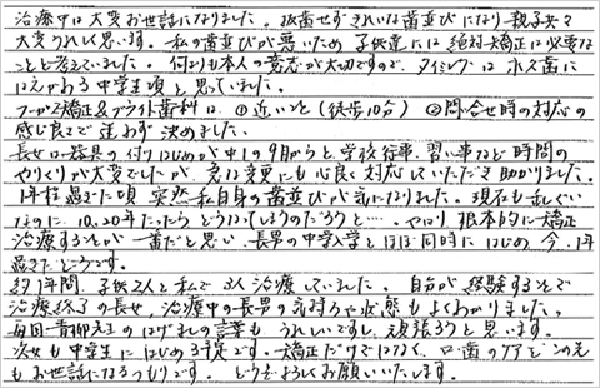 治療中は大変お世話になりました。抜歯せずきれいな歯並びになり親子共々
大変うれしく思います。私の歯並びが悪いため子供達には絶対矯正は必要な
ことと考えていました。何よりも本人の意志が大切ですので、タイミングは永久歯に
はえかわる中学生頃と思っていました。
矯正&ブライト歯科は、①近いこと(徒歩10分) ②問い合せ時の対応の
感じ良さで迷わず決めました。
長女は器具の付けはじめが中1の9月からと、学校行事、習い事など時間の
やりくりが大変でしたが、急な変更にも心良く対応していただき助かりました。
1年程過ぎた頃突然私自身の歯並びが気になりました。現在も
なのに、10、20年たったらどうなってしまうのだろうと…。やはり根本的に矯正
治療することが一番だと思い、長男の中学入学とほぼ同時にはじめ今、1年
過ぎたところです。
約1年間、子供2人と私で3人治療していました。自分が経験することで
治療終了の長女、治療中の長男の気持ちや状態もよくわかりました。
毎回青柳先生のはげましの言葉もうれしいですし、頑張ろうと思います。
次女も中学生にはじめる予定です。矯正だけではなく、口・歯のケアをこの先
もお世話になるつもりです。どうぞよろしくお願いいたします。